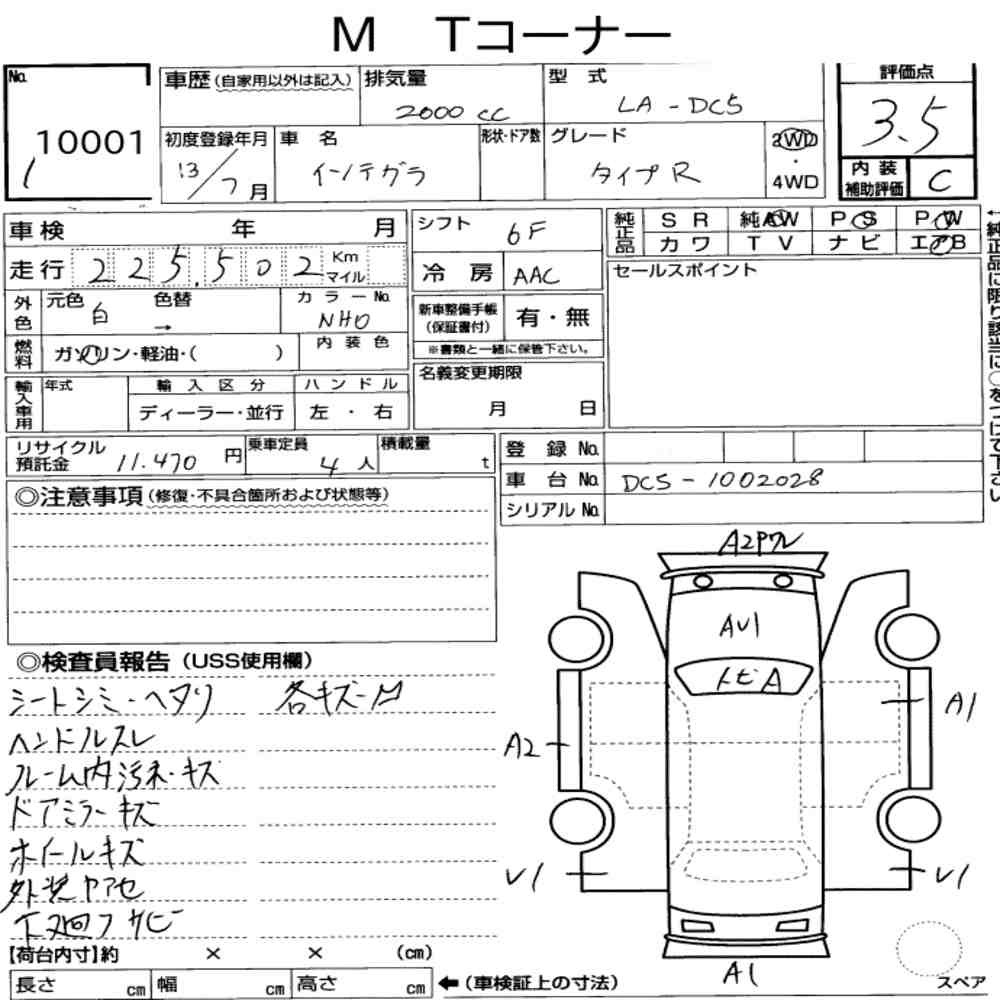 M Tコーナー
No. 10001
1
車歴(自家用以外は記入) 排気量 2000 cc 型式 LA-DC5 評価点 3.5
初度登録年月 13/7月 車名 インテグラ 形状・ドア数 グレード タイプR 2WD・4WD
内装補助評価 C
車検 年 月
走行 225,502 Km マイル
外色 元色 白 色替 → カラーNo. NH0
燃料 ガソリン・軽油・( ) 内装色
輸入車用 年式 輸入区分 ディーラー・並行 ハンドル 左・右
シフト 6F
冷房 AAC
新車整備手帳(保証書付) 有・無
※書類と一緒に保管下さい。
名義変更期限 月 日
純正品 SR 純AW PS PW
カワ TV ナビ エアB
セールスポイント
←純正品に限り該当に○をつけて下さい
リサイクル預託金 11.470円 乗車定員 4人 積載量 t
登録No.
車台No. DC5-1002028
シリアルNo.
◎注意事項(修復・不具合箇所および状態等)
◎検査員報告(USS使用欄)
シートシミ・ヘタリ 各キズ・凹
ハンドルスレ
ルーム内汚れ・キズ
ドアミラーキズ
ホイールキズ
外装ヤアセ
下廻りサビ
【荷台内寸】約 × × (cm)
長さ cm 幅 cm 高さ cm ←(車検証上の寸法)
A2Pワレ
AU1
トビA
A1
A2
V1
V1
A1
スペア